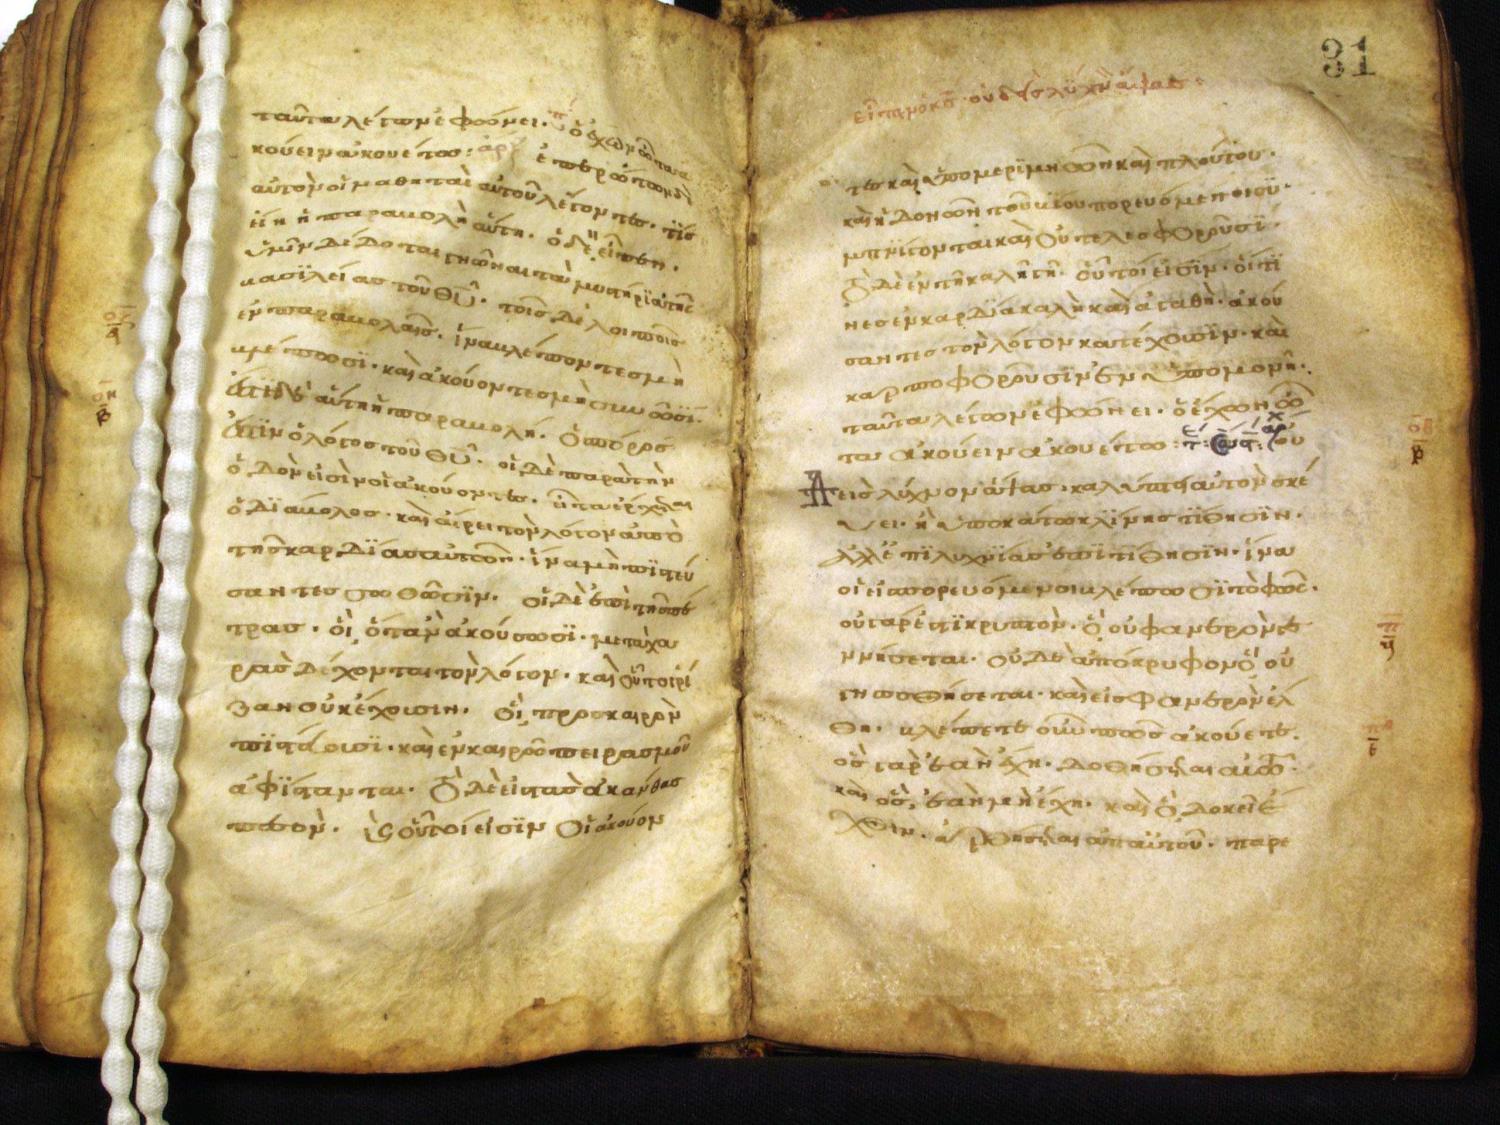 ταῦτα λέγων ἐφώνει· ὁ ἔχων ὦτα ἀ
κούειν ἀκουέτω: ἐπηρώτων δὲ
αὐτὸν οἱ μαθηταὶ αὐτοῦ λέγοντες· τίς
εἴη ἡ παραβολὴ αὕτη· ὁ δὲ εἶπεν·
ὑμῖν δέδοται γνῶναι τὰ μυστήρια τῆς
βασιλείας τοῦ θυ· τοῖς δὲ λοιποῖς
ἐν παραβολαῖς· ἵνα βλέποντες μὴ
βλέπωσι· καὶ ἀκούοντες μὴ συνιῶσι·
ἔστιν δὲ αὕτη ἡ παραβολή· ὁ σπόρος
ἐστὶν ὁ λόγος τοῦ θυ· οἱ δὲ παρὰ τὴν
ὁδὸν εἰσὶν οἱ ἀκούοντες· εἶτα ἔρχεται
ὁ διάβολος· καὶ αἴρει τὸν λόγον ἀπὸ
τῆς καρδίας αὐτῶν· ἵνα μὴ πιστεύ
σαντες σωθῶσιν· οἱ δὲ ἐπὶ τῆς πέ
τρας· οἳ ὅταν ἀκούσωσι· μετὰ χα
ρᾶς δέχονται τὸν λόγον· καὶ οὗτοι ῥί
ζαν οὐκ ἔχουσιν· οἳ πρὸς καιρὸν
πιστεύουσι· καὶ ἐν καιρῷ πειρασμοῦ
ἀφίστανται· τὸ δὲ εἰς τὰς ἀκάνθας
πεσὸν· οὗτοί εἰσιν οἱ ἀκούον
31
εἶπεν ὁ κς· οὐδεὶς λύχνον ἅψας
τες καὶ ὑπὸ μεριμνῶν καὶ πλούτου·
καὶ ἡδονῶν τοῦ βίου πορευόμενοι συ
μπνίγονται καὶ οὐ τελεσφοροῦσι·
τὸ δὲ ἐν τῇ καλῇ γῇ· οὗτοί εἰσιν· οἵτι
νες ἐν καρδία καλῆ καὶ ἀγαθῆ· ἀκού
σαντες τὸν λόγον κατέχουσιν· καὶ
καρποφοροῦσιν ἐν ὑπομονῇ·
ταῦτα λέγων ἐφώνει· ὁ ἔχων ὦ
τα ἀκούειν ἀκουέτω: οὐ
Δεὶς λύχνον ἅψας· καλύπτει αὐτὸν σκέ
υει· ἢ ὑποκάτω κλίνης τίθησιν·
ἀλλ' ἐπὶ λυχνίας ἐπιτίθησιν· ἵνα
οἱ εἰσπορευόμενοι βλέπωσι τὸ φῶς·
οὐ γάρ ἐστι κρυπτὸν· ὃ οὐ φανερὸν γε
νήσεται· οὐδὲ ἀπόκρυφον ὃ οὐ
γνωσθήσεται· καὶ εἰς φανερὸν ἔλ
θη· βλέπετε οὖν πῶς ἀκούετε·
ὃς γὰρ ἐὰν ἔχη· δοθήσεται αὐτῷ·
καὶ ὃς ἐὰν μὴ ἔχη· καὶ ὃ δοκεῖ ἔ
χειν· ἀρθήσεται ἀπ' αὐτοῦ· παρε